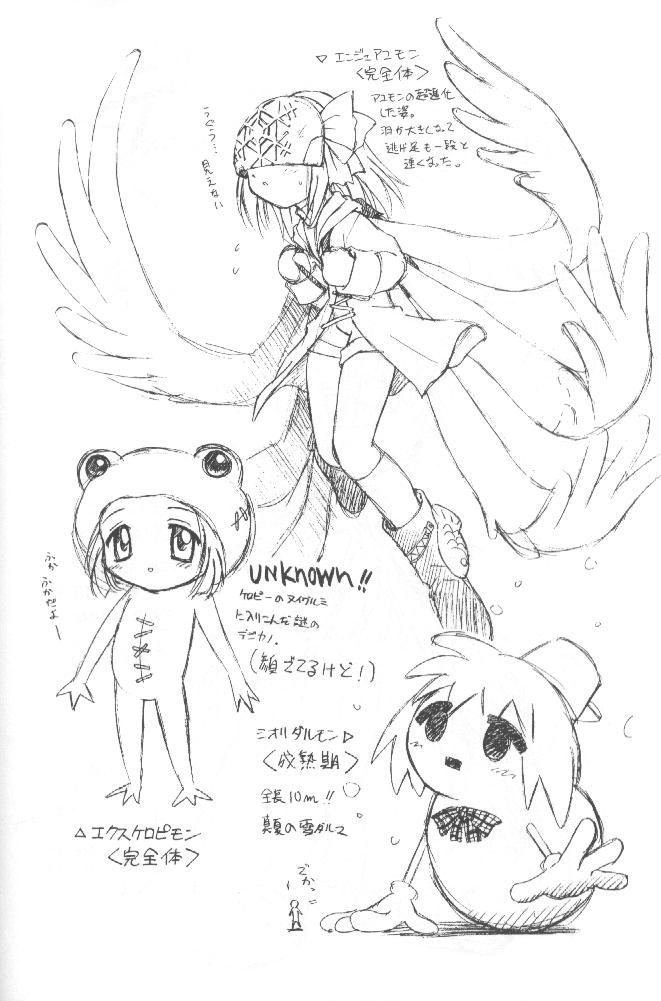 ▽ エンジュアユモン
〈完全体〉
アユモンの超進化
した姿。
羽が大きくなって
逃げ足も一段と
速くなった。
うぐぅ… 見えない
ぶかぶかだよー
UNKNOWN!!
ケロピーのヌイグルミ
に入りこんだ謎の
デジカノ。
(顔でてるけど!)
△エクスケロピモン
〈完全体〉
ミオリダルモン▷
〈成熟期〉
全長10m!!
真夏の雪ダルマ
でかっ